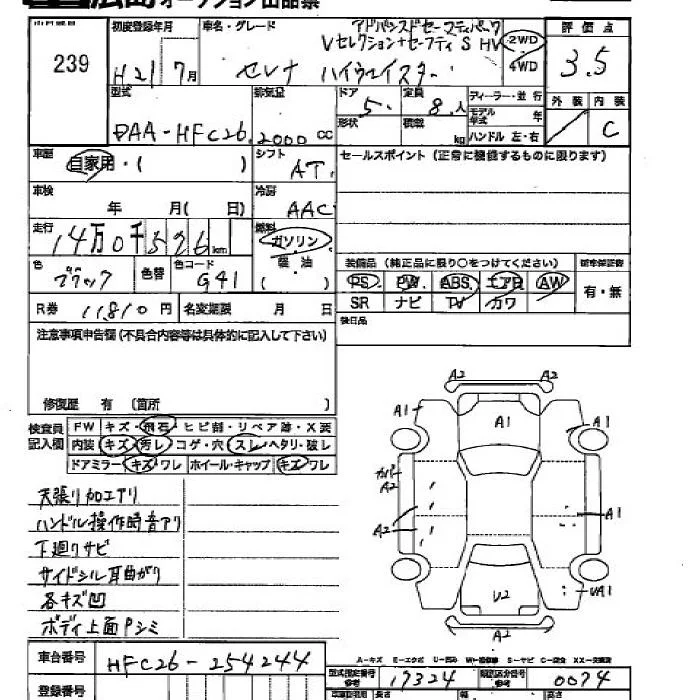 広島オークション出品票
出品番号 239
初度登録年月 H21 7月
車名・グレード アドバンスドセーフティパック
Vセレクション+セーフティ S HV
セレナ ハイウェイスター
2WD
4WD
評価点 3.5
外装 内装 C
型式 DAA-HFC26
排気量 2000 cc
ドア 5
定員 8人
形状
積載 kg
ディーラー・並行
モデル年式 年
ハンドル 左・右
車歴 自家用・( )
シフト AT
セールスポイント (正常に機能するものに限ります)
車検 年 月( 日)
冷房 AAC
走行 14万0千526km
燃料 ガソリン
軽油
( )
色 ブラック
色替
色コード G41
装備品 (純正品に限り○をつけてください)
PS PW ABS エアB AW
SR ナビ TV カワ
有・無
R券 11810円
名変期限 月 日
後日品
注意事項申告欄 (不具合内容等は具体的に記入して下さい)
修復歴 有 (箇所 )
検査員記入欄
FW キズ・飛石・ヒビ割・リペア跡・X要
内装 キズ・汚レ・コゲ・穴・スレ・ヘタリ・破レ
ドアミラー キズ・ワレ ホイール・キャップ キズ・ワレ
天張り加工アリ
ハンドル操作時音アリ
下廻りサビ
サイドシル耳曲がり
各キズ凹
ボディ上面Pシミ
A2 A2
A1 A1 A1
カバーA2
A2 A1
U2 UA1
A2
A-キズ E-エクボ U-凹み W-補修跡 S-サビ C-腐食 XX-交換済
車台番号 HFC26-254244
型式指定番号 参考 17324
類別区分番号 参考 0074
登録番号
長さ 幅